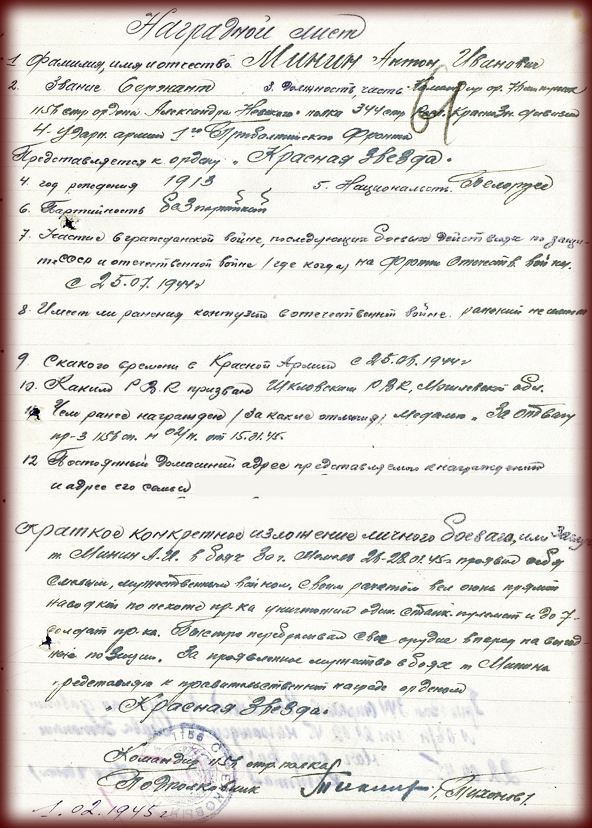 Наградной лист
1 Фамилия, имя и отчество. Минин Антон Иванович
2. Звание Сержант 3. Должность, часть Командир ор. 76мм пушек
1156 стр ордена Александра Невского полка 344 стр Росл. Краснозн. дивизии
4. ударн. армии 1го Прибалтийского Фронта
Представляется к ордену "Красная Звезда".
4. год рождения 1913 5. Националность. Белорус
6. Партийность безпартийный
7. Участие в гражданской войне, последующих боевых действиях по защи-
те СССР и отечественной войне (где когда) на Фронте Отечеств. войны.
с 25.07.1944г
8. Имеет ли ранения контузии в отечественной войне. ранений не имеет
9. С какого времени в Красной Армии с 25.06.1944г
10. Каким Р.В.К призван Шкловским Р.В.К, Могилевской обл.
11. Чем ранее награжден (за какие отличия) медалью "За отвагу
пр-з 1156 сп. № 02/н. от 15.01.45г.
12 Постоянный домашний адрес представляемого к награждению
и адрес его семьи
Краткое конкретное изложение личного боевого, или
т. Минин А.И. в боях за г. 26-28.01.45г проявил себя
смелым, мужественным войном. Своим расчетом вел огонь прямой
наводкой по пехоте пр-ка уничтожил один. станк. пулемет и до 7-
солдат пр-ка. Быстро перебрасывал свое орудие вперед на выгод-
ную позицию. За проявленное мужество в боях т Минина
представляю к правительственной награде орденом
"Красная Звезда".
1156
Командир 1156 стр. полка
Подполковник (Тихонов)
1.02.1945г
61